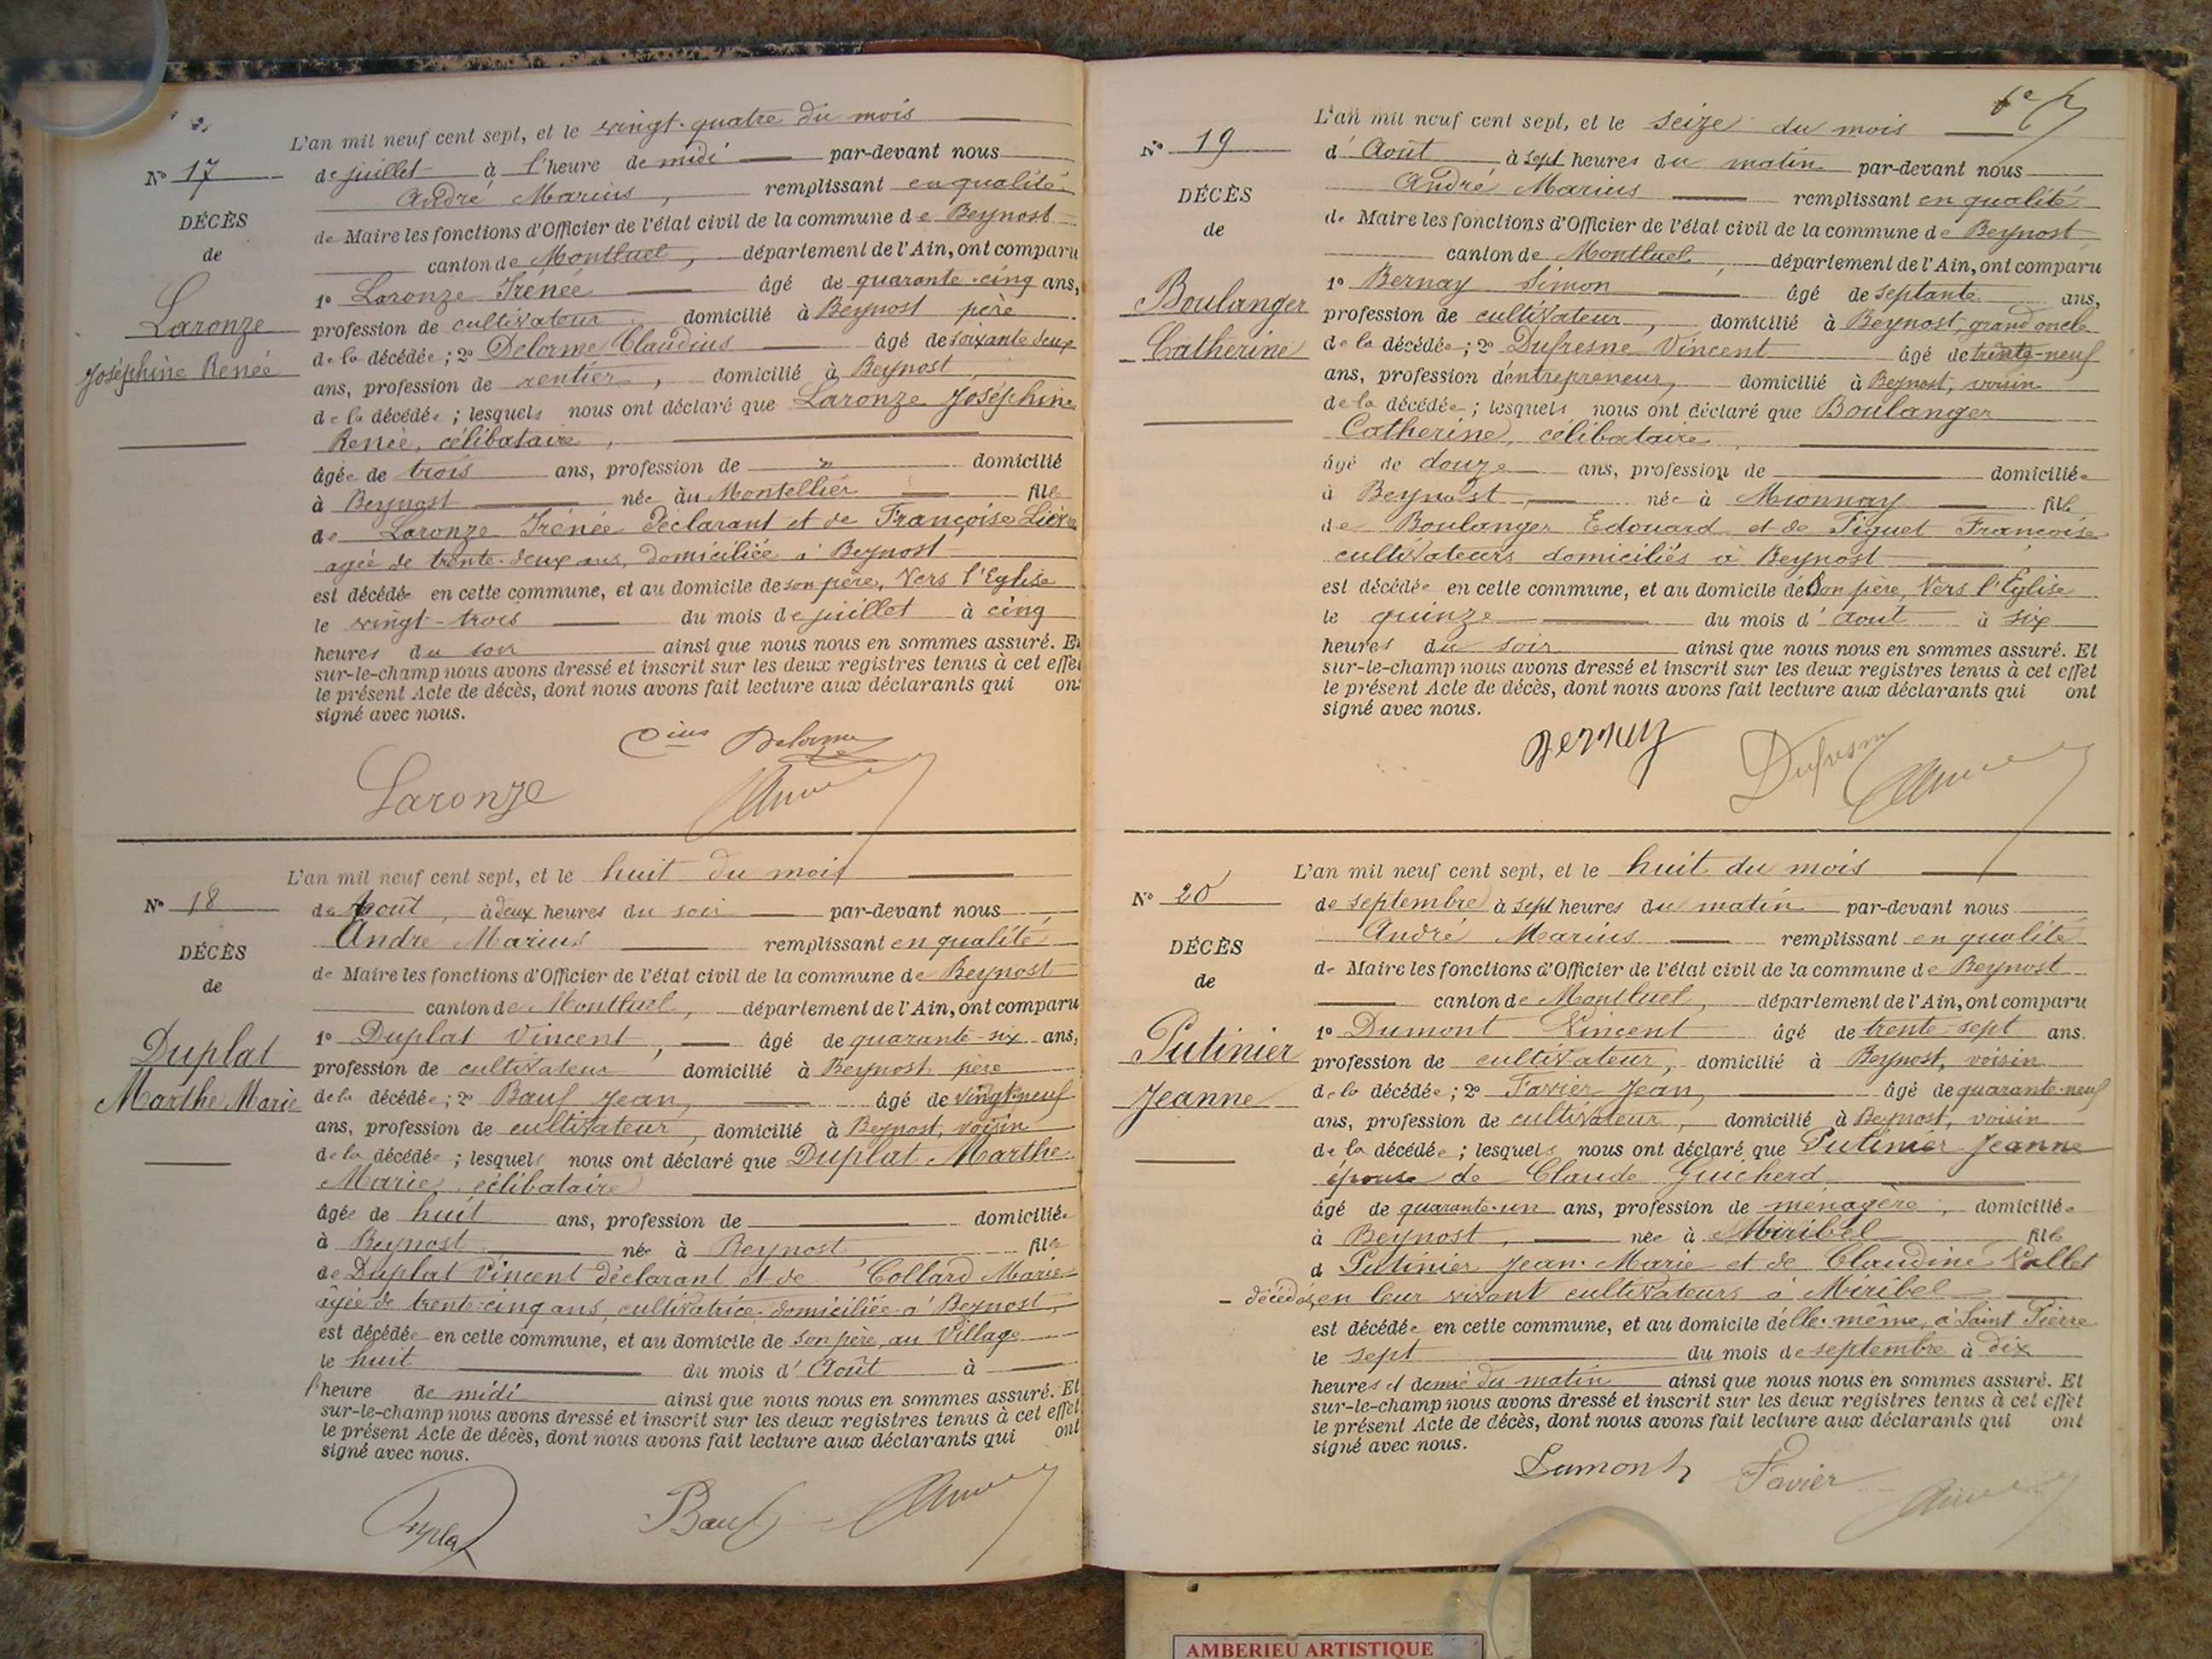 L'an mil neuf cent sept, et le vingt-quatre du mois
N° 17
de juillet à l'heure de midi par-devant nous
André Marius, remplissant en qualité
DÉCÈS
de Maire les fonctions d'Officier de l'état civil de la commune de Beynost
de
canton de Montluel, département de l'Ain, ont comparu
1° Laronze Irénée âgé de quarante-cinq ans,
Laronze
profession de cultivateur domicilié à Beynost père
de la décédée; 2° Delorme Claudius âgé de soixante deux
Joséphine Renée
ans, profession de rentier, domicilié à Beynost,
de la décédée; lesquels nous ont déclaré que Laronze Joséphine
Renée, célibataire,
âgée de trois ans, profession de " domicilié
à Beynost née au Montellier fille
de Laronze Irénée déclarant et de Françoise
agée de trente-deux ans, domiciliée à Beynost
est décédée en cette commune, et au domicile de son père, Vers l'Eglise
le vingt-trois du mois de juillet à cinq
heures du soir ainsi que nous nous en sommes assuré. Et
sur-le-champ nous avons dressé et inscrit sur les deux registres tenus à cet effet
le présent Acte de décès, dont nous avons fait lecture aux déclarants qui ont
signé avec nous.
Cius Delorme
Laronze
L'an mil neuf cent sept, et le huit du mois
N° 18
de Août, à deux heures du soir par-devant nous
André Marius remplissant en qualité
DÉCÈS
de Maire les fonctions d'Officier de l'état civil de la commune de Beynost
de
canton de Montluel, département de l'Ain, ont comparu
1° Duplat Vincent, âgé de quarante-six ans,
Duplat
profession de cultivateur domicilié à Beynost père
Marthe Marie
de la décédée; 2° Bauf Jean, âgé de vingt-neuf
ans, profession de cultivateur, domicilié à Beynost, voisin
de la décédée; lesquels nous ont déclaré que Duplat Marthe
Marie, célibataire
âgée de huit ans, profession de domiciliée
à Beynost née à Beynost fille
de Duplat Vincent déclarant et de Collard Marie
agée de trente-cinq ans, cultivatrice domiciliée à Beynost,
est décédée en cette commune, et au domicile de son père, au Village
le huit du mois d'Août à
l'heure de midi ainsi que nous nous en sommes assuré. Et
sur-le-champ nous avons dressé et inscrit sur les deux registres tenus à cet effet
le présent Acte de décès, dont nous avons fait lecture aux déclarants qui ont
signé avec nous.
Duplat Bauf
L'an mil neuf cent sept, et le seize du mois
N° 19
d'Août à sept heures du matin par-devant nous
André Marius remplissant en qualité
DÉCÈS
de Maire les fonctions d'Officier de l'état civil de la commune de Beynost
de
canton de Montluel, département de l'Ain, ont comparu
1° Bernay Simon âgé de septante ans,
Boulanger
profession de cultivateur, domicilié à Beynost, grand oncle
Catherine
de la décédée; 2° Dufresne Vincent âgé de trente-neuf
ans, profession d'entrepreneur, domicilié à Beynost, voisin
de la décédée; lesquels nous ont déclaré que Boulanger
Catherine, célibataire,
âgé de douze ans, profession de domiciliée
à Beynost, née à Mionnay fille
de Boulanger Edouard et de Piguet Françoise
cultivateurs domiciliés à Beynost
est décédée en cette commune, et au domicile de son père, Vers l'Eglise
le quinze du mois d'Août à six
heures du soir ainsi que nous nous en sommes assuré. Et
sur-le-champ nous avons dressé et inscrit sur les deux registres tenus à cet effet
le présent Acte de décès, dont nous avons fait lecture aux déclarants qui ont
signé avec nous.
Bernay Dufresne
L'an mil neuf cent sept, et le huit du mois
N° 20
de septembre à sept heures du matin par-devant nous
André Marius remplissant en qualité
DÉCÈS
de Maire les fonctions d'Officier de l'état civil de la commune de Beynost
de
canton de Montluel, département de l'Ain, ont comparu
1° Dumont Vincent âgé de trente-sept ans.
Putinier
profession de cultivateur, domicilié à Beynost, voisin
Jeanne
de la décédée; 2° Favier Jean, âgé de quarante-neuf
ans, profession de cultivateur, domicilié à Beynost, voisin
de la décédée; lesquels nous ont déclaré que Putinier Jeanne
épouse de Claude Guicherd
âgé de quarante-un ans, profession de ménagère, domiciliée
à Beynost, née à Miribel fille
d Putinier Jean-Marie et de Claudine Vallet
décédés, en leur vivant cultivateurs à Miribel
est décédée en cette commune, et au domicile d'elle-même, à Saint Pierre
le sept du mois de septembre à dix
heures et demie du matin ainsi que nous nous en sommes assuré. Et
sur-le-champ nous avons dressé et inscrit sur les deux registres tenus à cet effet
le présent Acte de décès, dont nous avons fait lecture aux déclarants qui ont
signé avec nous.
Dumont Favier
AMBERIEU ARTISTIQUE